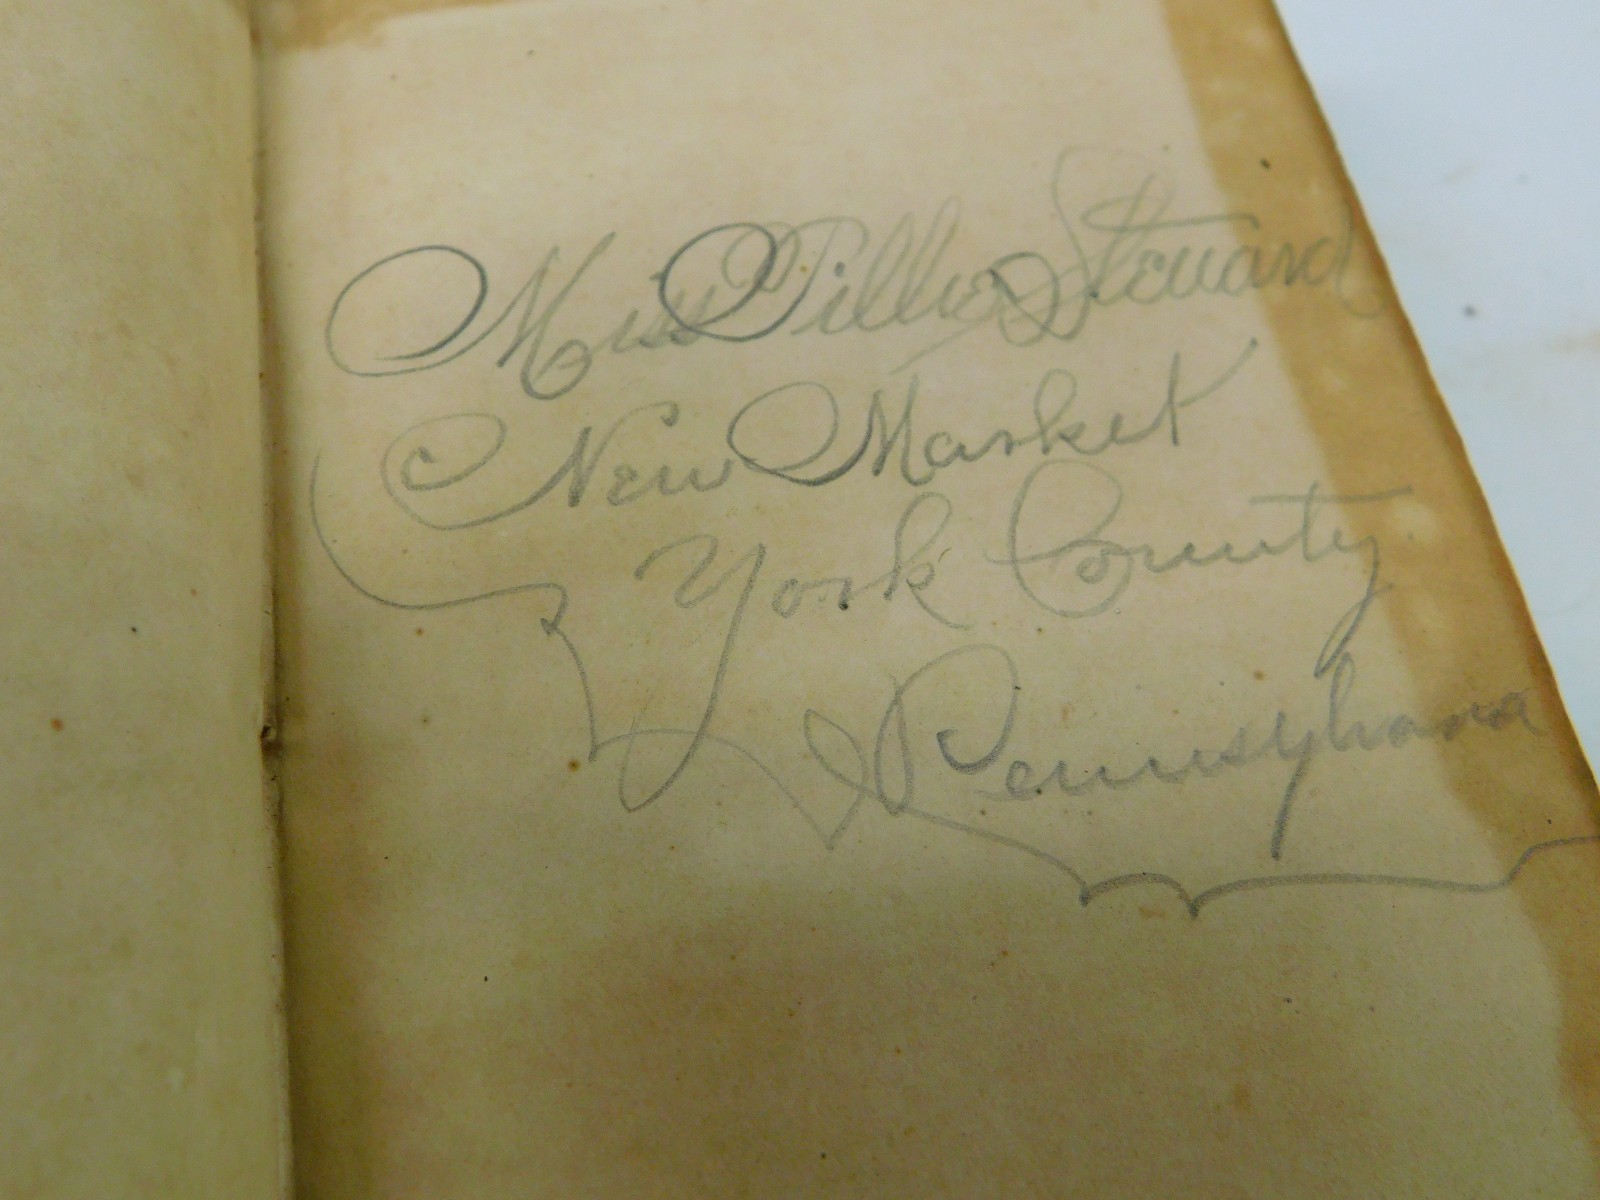 Miss Tillie Steward
New Market
York County
Pennsylvana